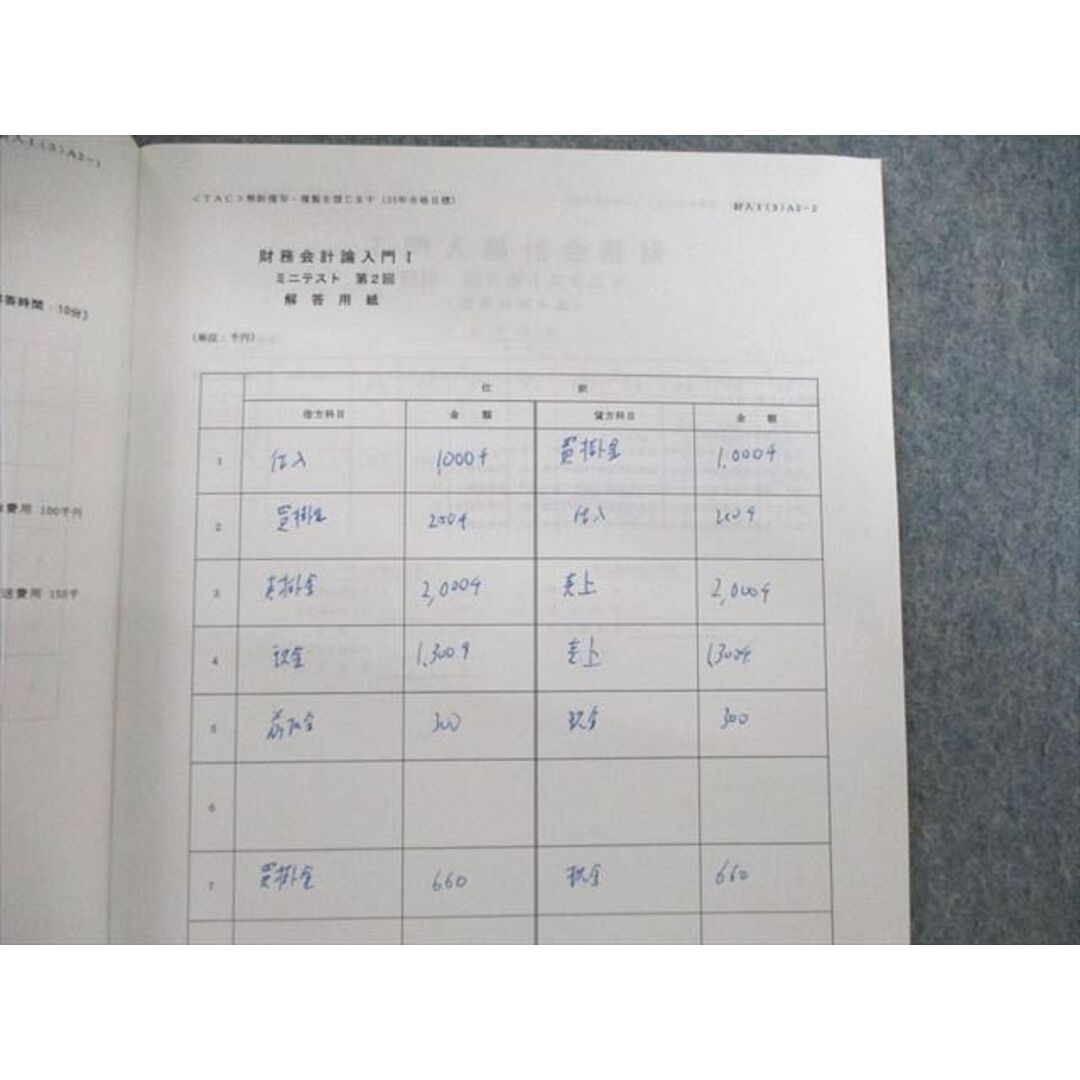 <TAC>無断複写・複製を禁じます (23年合格目標)
財入Ⅰ(3)A2-2
財務会計論入門Ⅰ
ミニテスト 第2回
解答用紙
(単位：千円)
仕 訳
借方科目 金額 貸方科目 金額
1 仕入 1,000千 買掛金 1,000千
2 買掛金 200千 仕入 200千
3 売掛金 2,000千 売上 2,000千
4 現金 1,300千 売上 1,300千
5 300 現金 300
6
7 買掛金 660 現金 660
財入Ⅰ(3)A2-1
解答時間：10分】
費用 100千円
送費用 150千